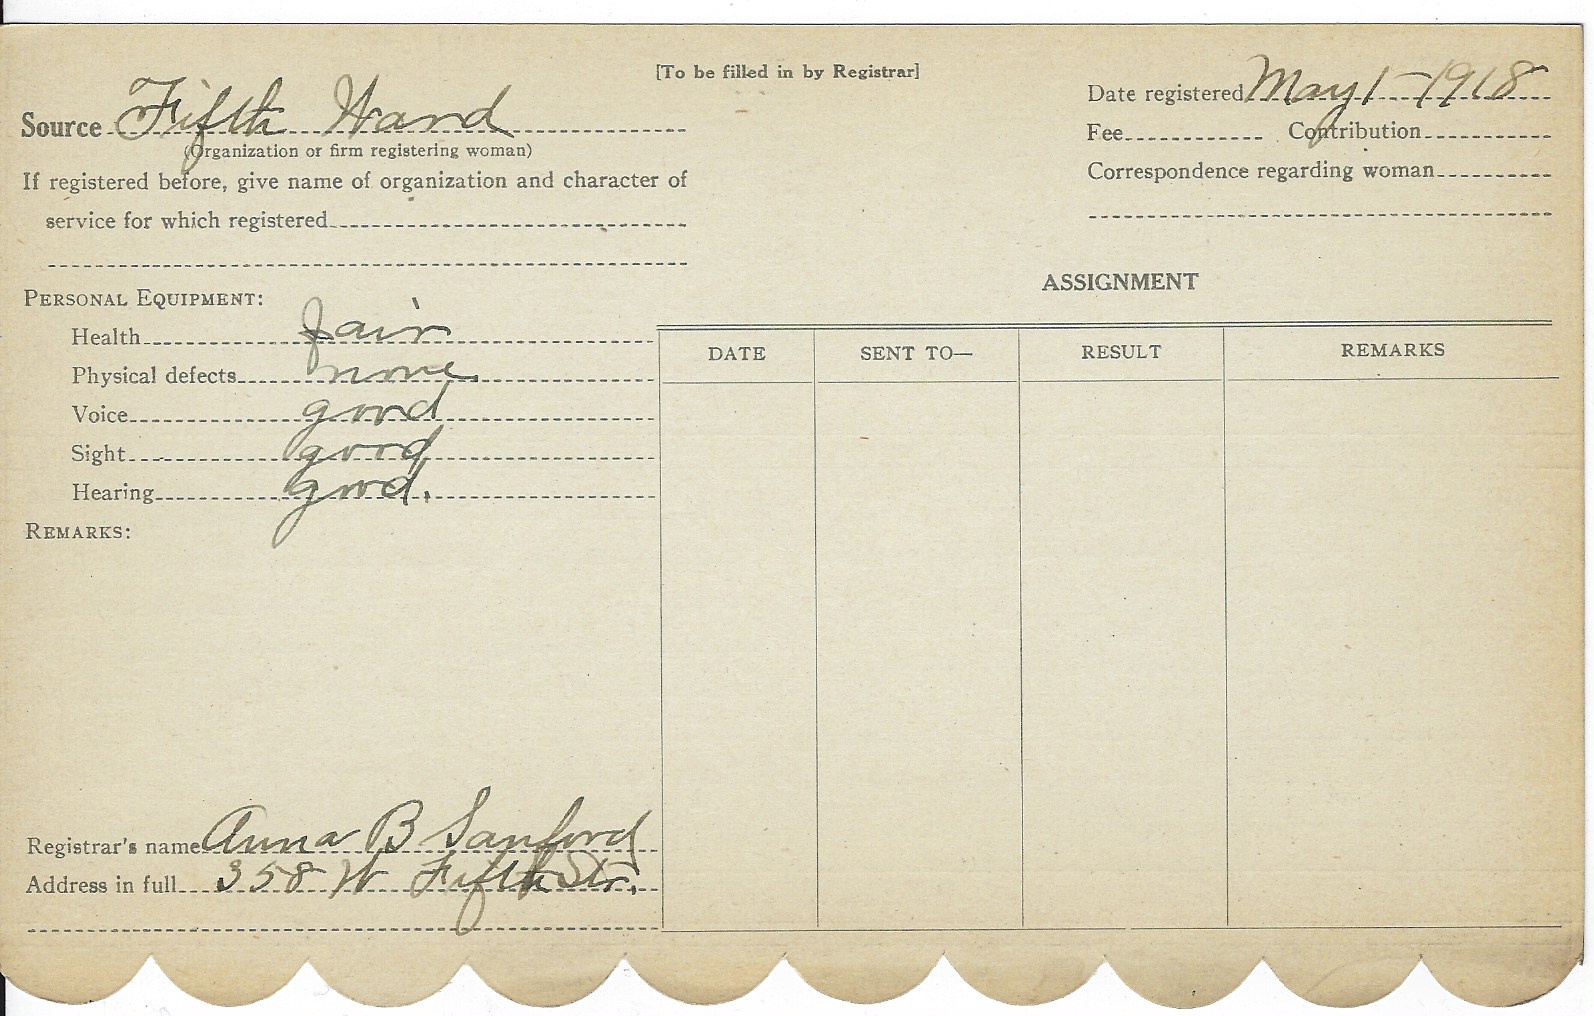 [To be filled in by Registrar]
Source Fifth Ward
(Organization or firm registering woman)
If registered before, give name of organization and character of
service for which registered
Date registered May 1-1918
Fee Contribution
Correspondence regarding woman
PERSONAL EQUIPMENT:
Health fair
Physical defects none
Voice good
Sight good
Hearing good.
REMARKS:
Registrar's name Anna B Sanford
Address in full 358 W Fifth Str.
ASSIGNMENT
DATE SENT TO— RESULT REMARKS